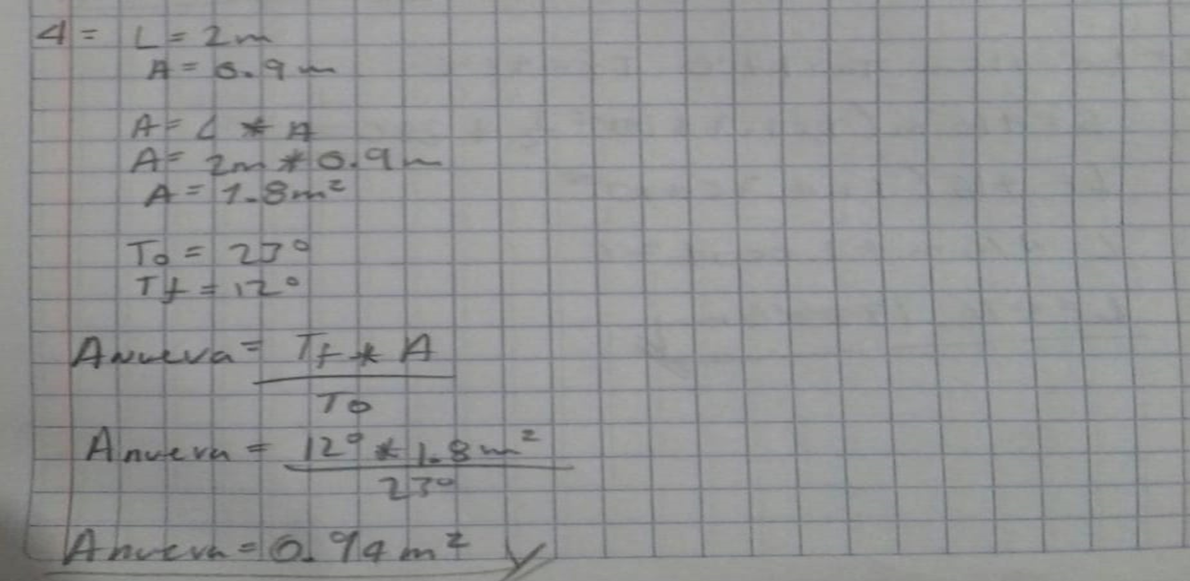 4 = L = 2m
A = 0.9 m
A = L * A
A = 2m * 0.9 m
A = 1.8 m²
To = 23°
Tf = 12°
Anueva = Tf * A
To
Anueva = 12° * 1.8 m²
23°
Anueva = 0.94 m²